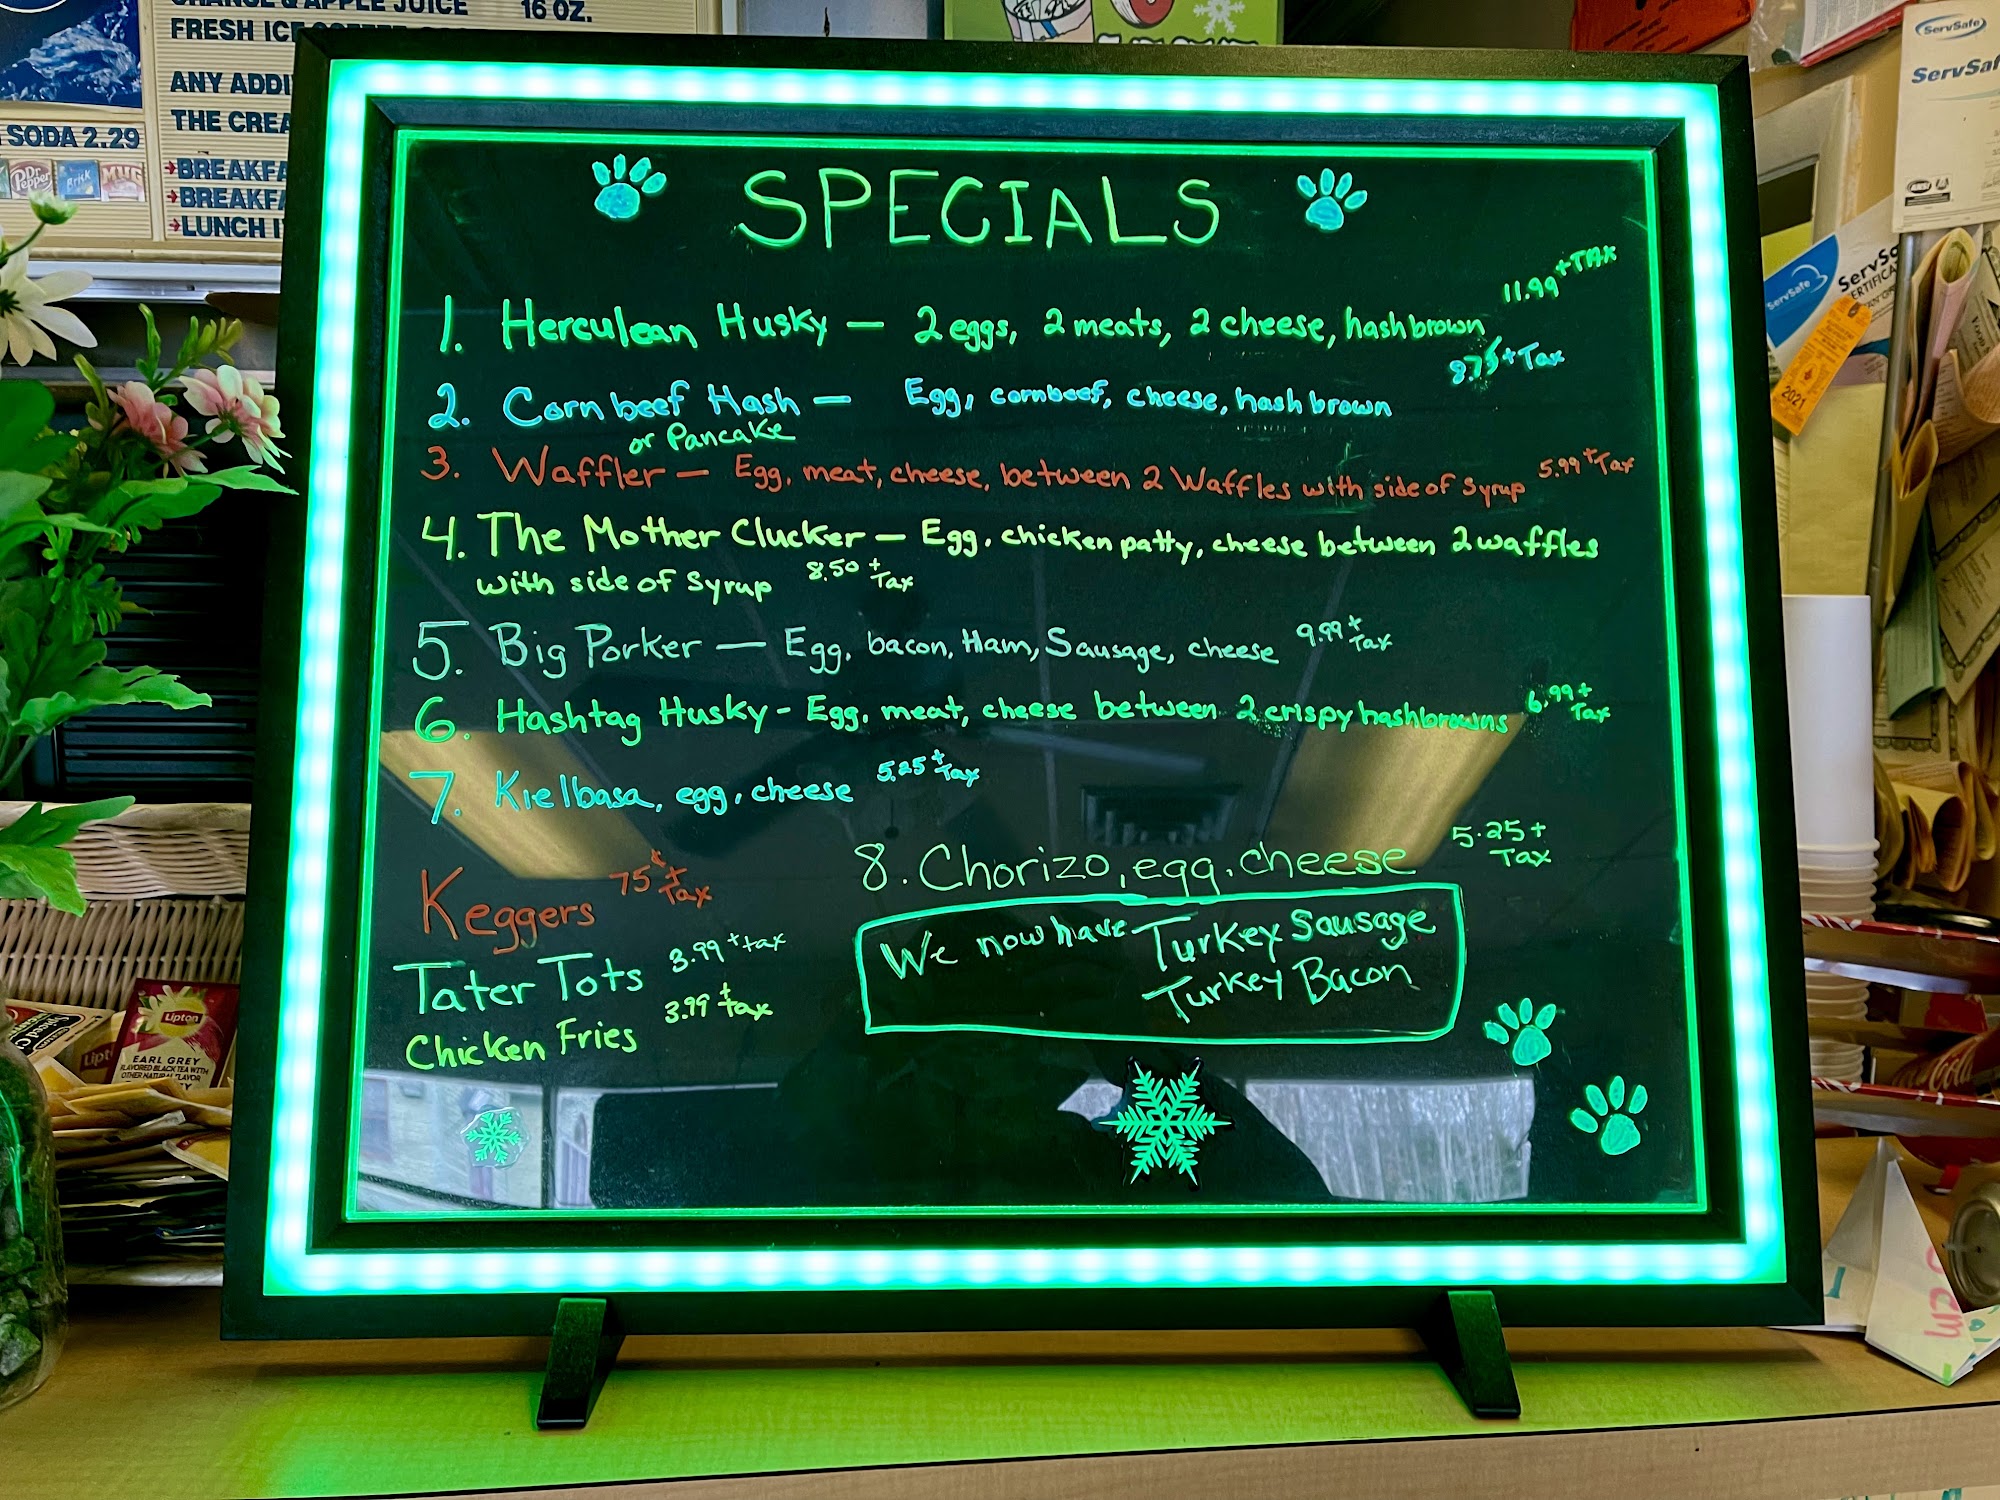 ORANGE & APPLE JUICE 16 OZ.
FRESH ICE
ANY ADDI
THE CREA
SODA 2.29
Dr Pepper
Brisk
MUG
BREAKFA
BREAKFA
LUNCH I
ServSafe
ServSaf
ServSafe
ServSa
ERTIFICA
2021
SPECIALS
1. Herculean Husky — 2 eggs, 2 meats, 2 cheese, hashbrown 11.99 + TAX
2. Corn beef Hash — Egg, cornbeef, cheese, hash brown 8.75 + Tax
or Pancake
3. Waffler — Egg, meat, cheese, between 2 Waffles with side of Syrup 5.99 + Tax
4. The Mother Clucker — Egg, chicken patty, cheese between 2 waffles
with side of Syrup 8.50 + Tax
5. Big Porker — Egg, bacon, Ham, Sausage, cheese 9.99 + Tax
6. Hashtag Husky - Egg, meat, cheese between 2 crispy hashbrowns 6.99 + Tax
7. Kielbasa, egg, cheese 5.25 + Tax
8. Chorizo, egg, cheese 5.25 + Tax
Keggers 75¢ + Tax
Tater Tots 3.99 + tax
Chicken Fries 3.99 + tax
We now have Turkey Sausage
Turkey Bacon
Lipton
EARL GREY
FLAVORED BLACK TEA WITH
OTHER NATURAL FLAVOR
Cola